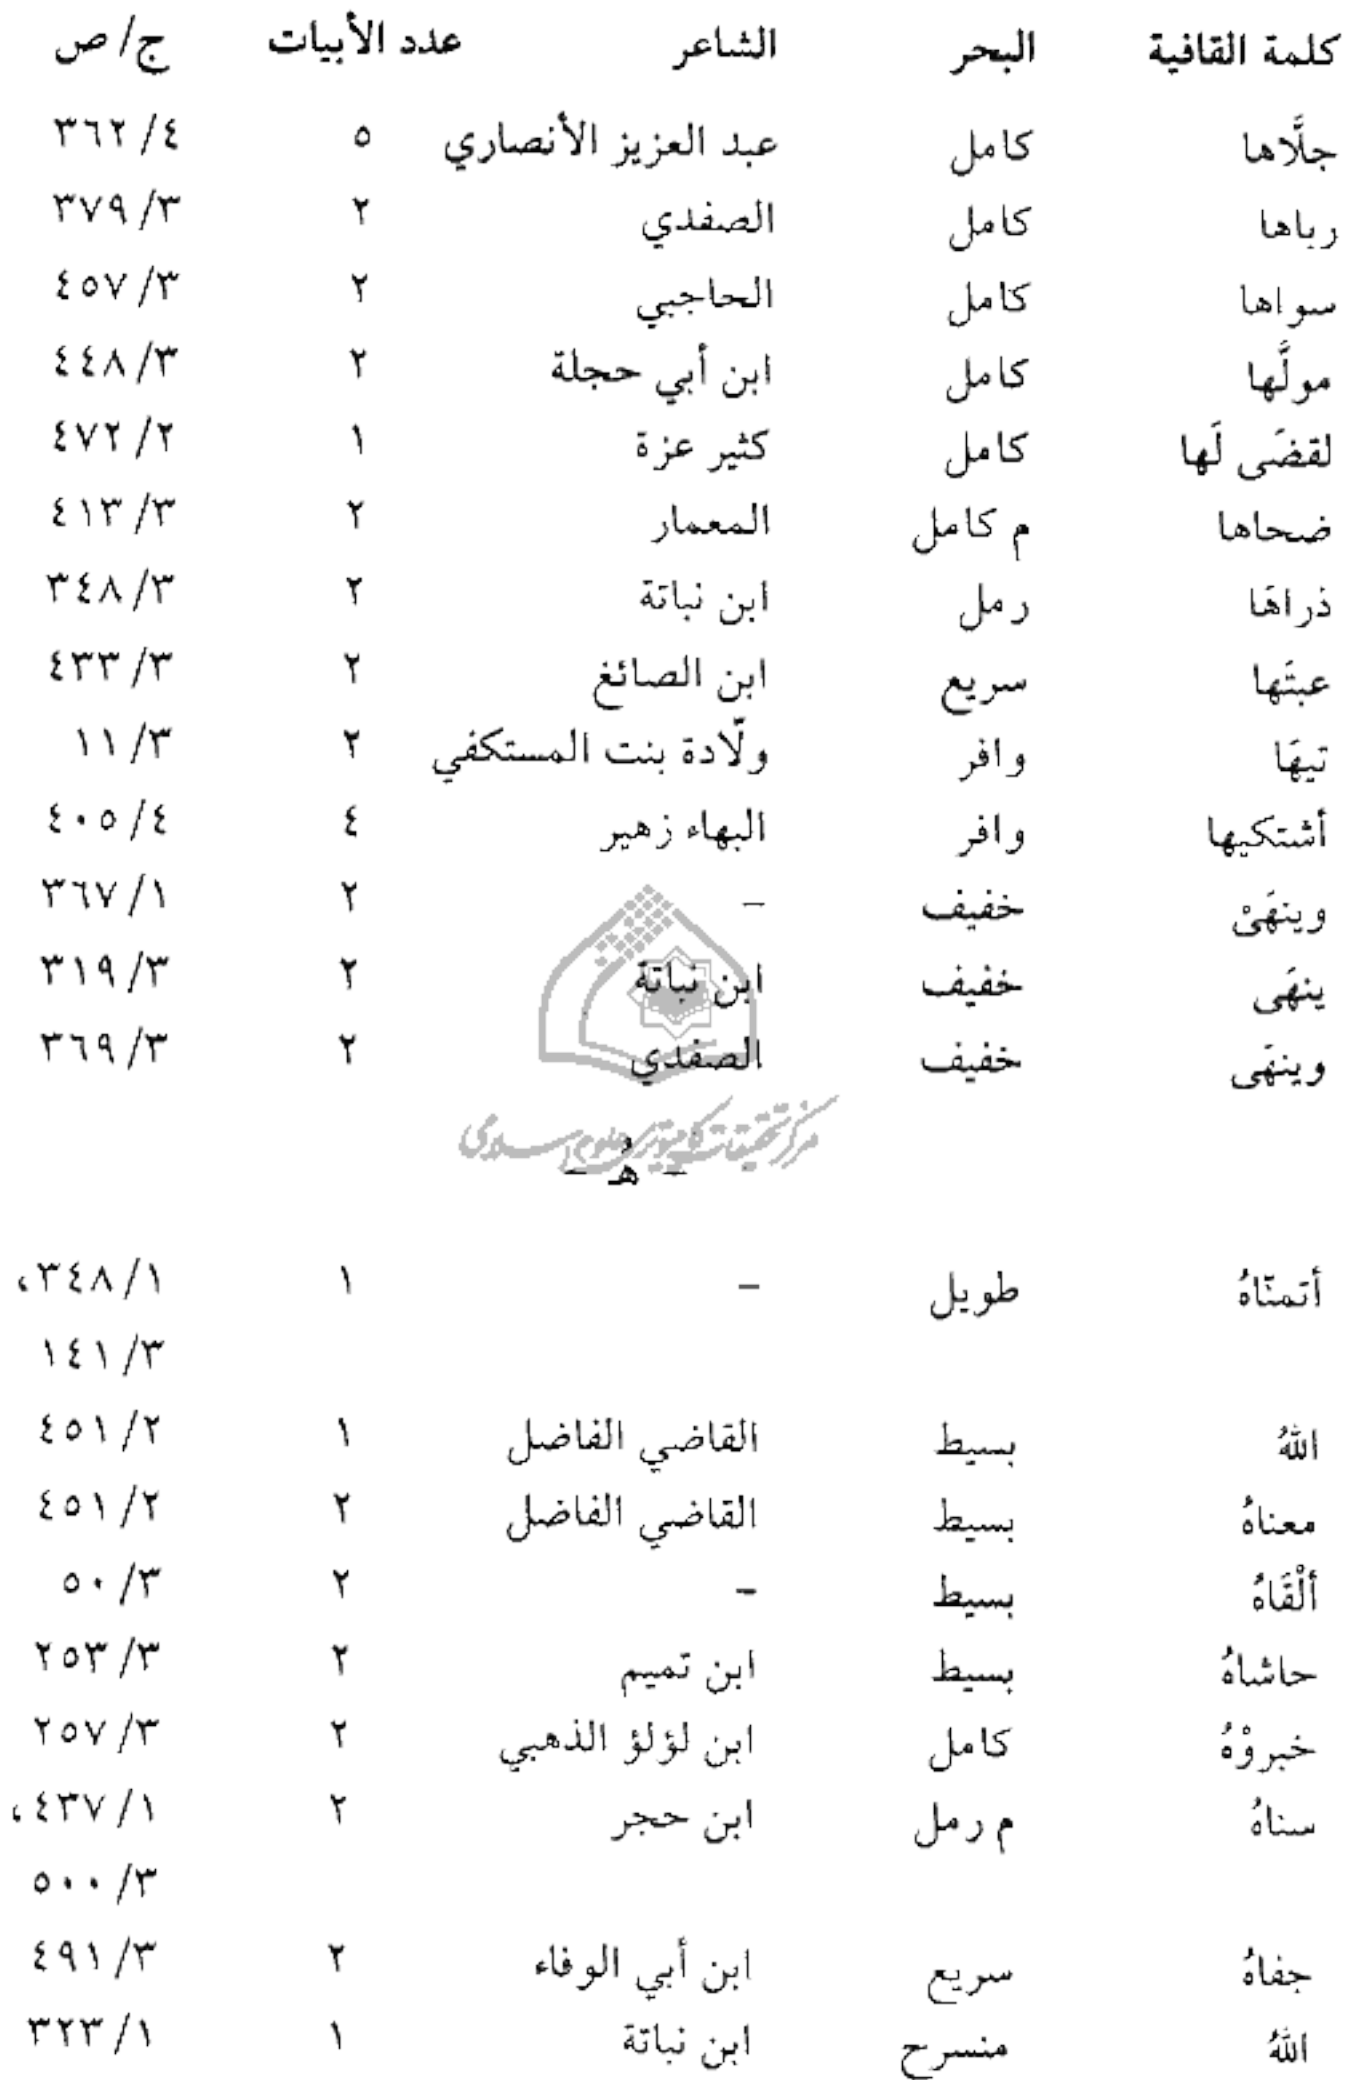 كلمة القافية البحر الشاعر عدد الأبيات ج/ ص
جلَّاها كامل عبد العزيز الأنصاري ٥ ٤/ ٣٦٢
رباها كامل الصفدي ٢ ٣/ ٣٧٩
سواها كامل الحاجبي ٢ ٣/ ٤٥٧
مولَّها كامل ابن أبي حجلة ٢ ٣/ ٤٤٨
لقضَى لَها كامل كثير عزة ١ ٢/ ٤٧٢
ضحاها م كامل المعمار ٢ ٣/ ٤١٣
ذراهَا رمل ابن نباتة ٢ ٣/ ٣٤٨
عبتَها سريع ابن الصائغ ٢ ٣/ ٤٣٣
تيهَا وافر ولّادة بنت المستكفي ٢ ٣/ ١١
أشتكيها وافر البهاء زهير ٤ ٤/ ٤٠٥
وينهَىْ خفيف – ٢ ١/ ٣٦٧
ينهَى خفيف ابن نباتة ٢ ٣/ ٣١٩
وينهَى خفيف الصفدي ٢ ٣/ ٣٦٩
مركز تحقيقات كامپيوترى علوم اسلامى
– هـُ –
أتمنّاهُ طويل – ١ ١/ ٣٤٨،
٣/ ١٤١
اللهُ بسيط القاضي الفاضل ١ ٢/ ٤٥١
معناهُ بسيط القاضي الفاضل ٢ ٢/ ٤٥١
ألْقَاهُ بسيط – ٢ ٣/ ٥٠
حاشاهُ بسيط ابن تميم ٢ ٣/ ٢٥٣
خبروْهُ كامل ابن لؤلؤ الذهبي ٢ ٣/ ٢٥٧
سناهُ م رمل ابن حجر ٢ ١/ ٤٣٧،
٣/ ٥٠٠
جفاهُ سريع ابن أبي الوفاء ٢ ٣/ ٤٩١
اللهُ منسرح ابن نباتة ١ ١/ ٣٢٣